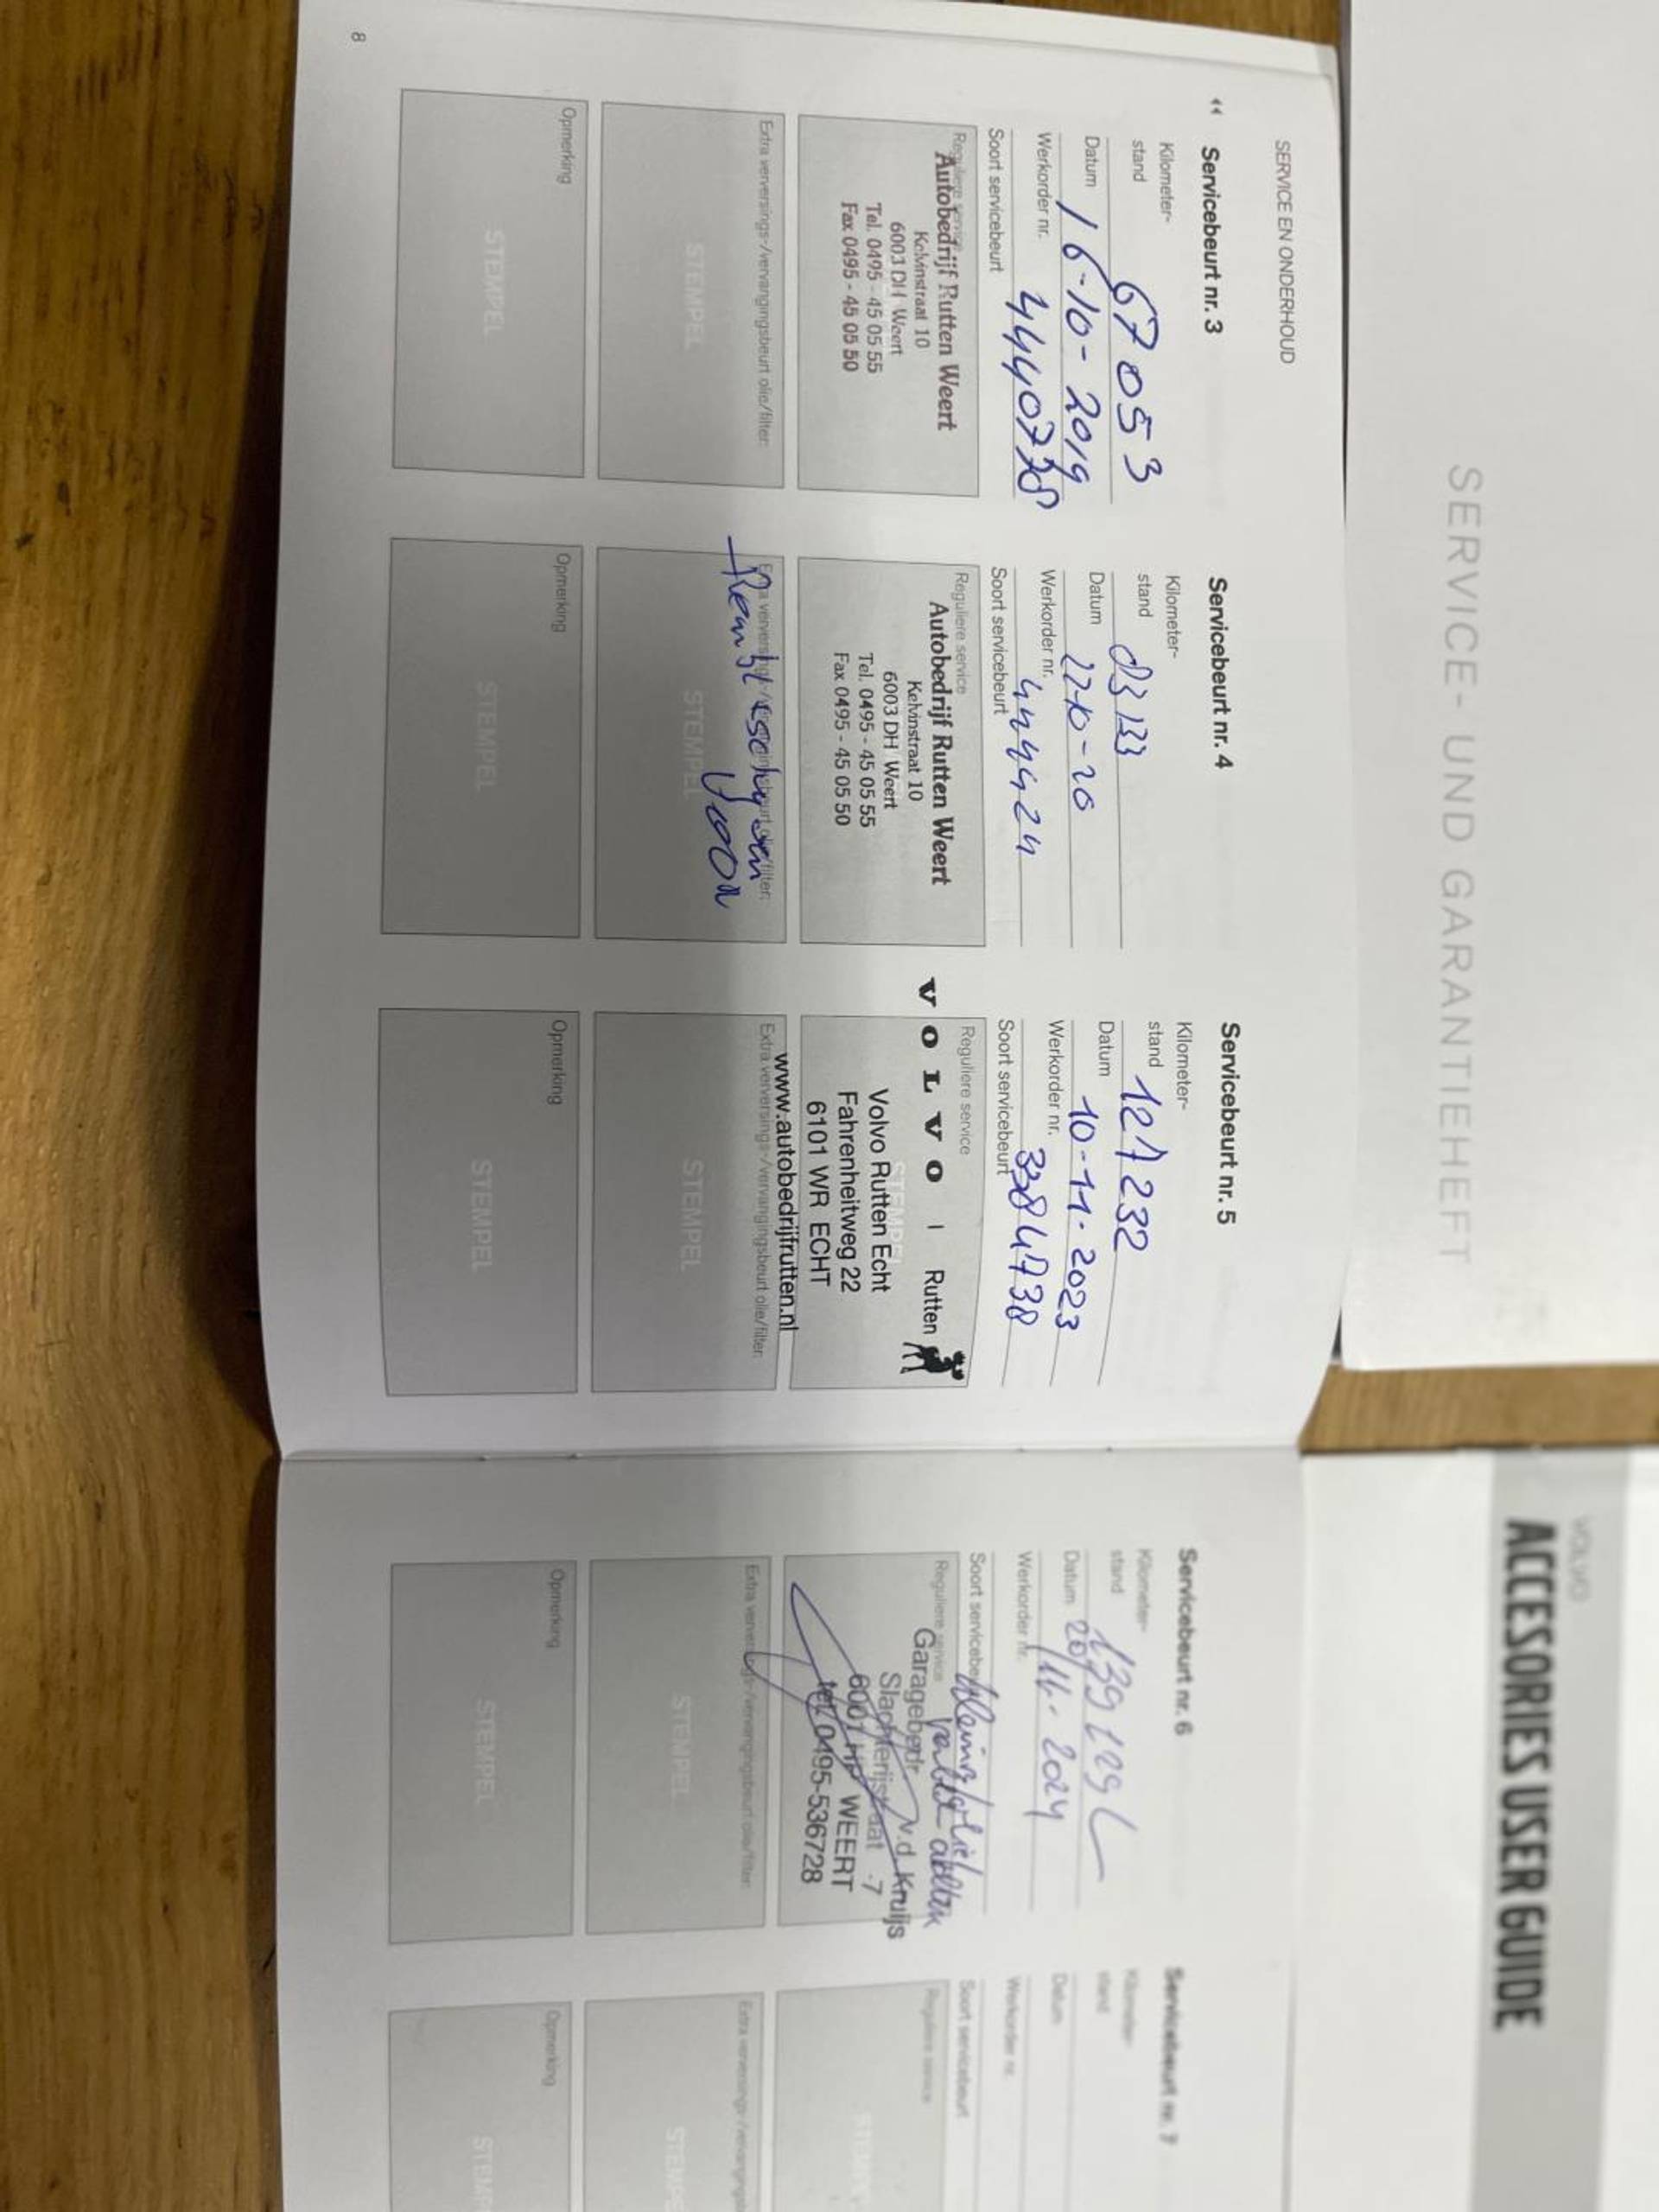 SERVICE- UND GARANTIEHEFT
VOLVO
ACCESSORIES USER GUIDE
SERVICE EN ONDERHOUD
Servicebeurt nr. 3
Kilometer-
stand 67053
Datum 16-10-2019
Werkorder nr. 4440778
Soort servicebeurt
Reguliere service
Autobedrijf Rutten Weert
Kelvinstraat 10
6003 DH Weert
Tel. 0495 - 45 05 55
Fax 0495 - 45 05 50
Extra verversings-/vervangingsbeurt olie/filter:
STEMPEL
Opmerking
STEMPEL
8
Servicebeurt nr. 4
Kilometer-
stand 83133
Datum 22-10-20
Werkorder nr. 4444424
Soort servicebeurt
Reguliere service
Autobedrijf Rutten Weert
Kelvinstraat 10
6003 DH Weert
Tel. 0495 - 45 05 55
Fax 0495 - 45 05 50
Extra verversings-/vervangingsbeurt olie/filter:
Voor
STEMPEL
Opmerking
STEMPEL
Servicebeurt nr. 5
Kilometer-
stand 121232
Datum 10-11-2023
Werkorder nr. 3384738
Soort servicebeurt
Reguliere service
VOLVO | Rutten
STEMPEL
Volvo Rutten Echt
Fahrenheitweg 22
6101 WR ECHT
www.autobedrijfrutten.nl
Extra verversings-/vervangingsbeurt olie/filter:
STEMPEL
Opmerking
STEMPEL
Servicebeurt nr. 6
Kilometer-
stand 139129
Datum 20/11-2024
Werkorder nr.
Soort servicebeurt
Reguliere service
Garagebedr. v.d. Kruijs
6001 HP WEERT
tel. 0495-536728
Extra verversings-/vervangingsbeurt olie/filter:
STEMPEL
Opmerking
STEMPEL
Servicebeurt nr. 7
Kilometer-
stand
Datum
Werkorder nr.
Soort servicebeurt
Reguliere service
Opmerking